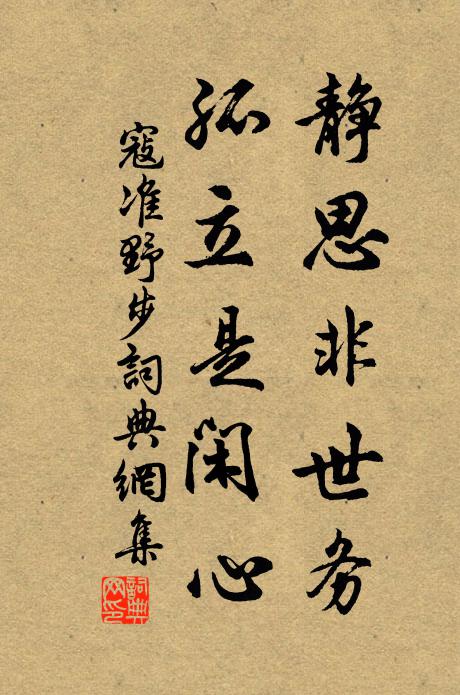 静思非世务
孤立是闲心
寇准野步詞典網集
詞典
网印